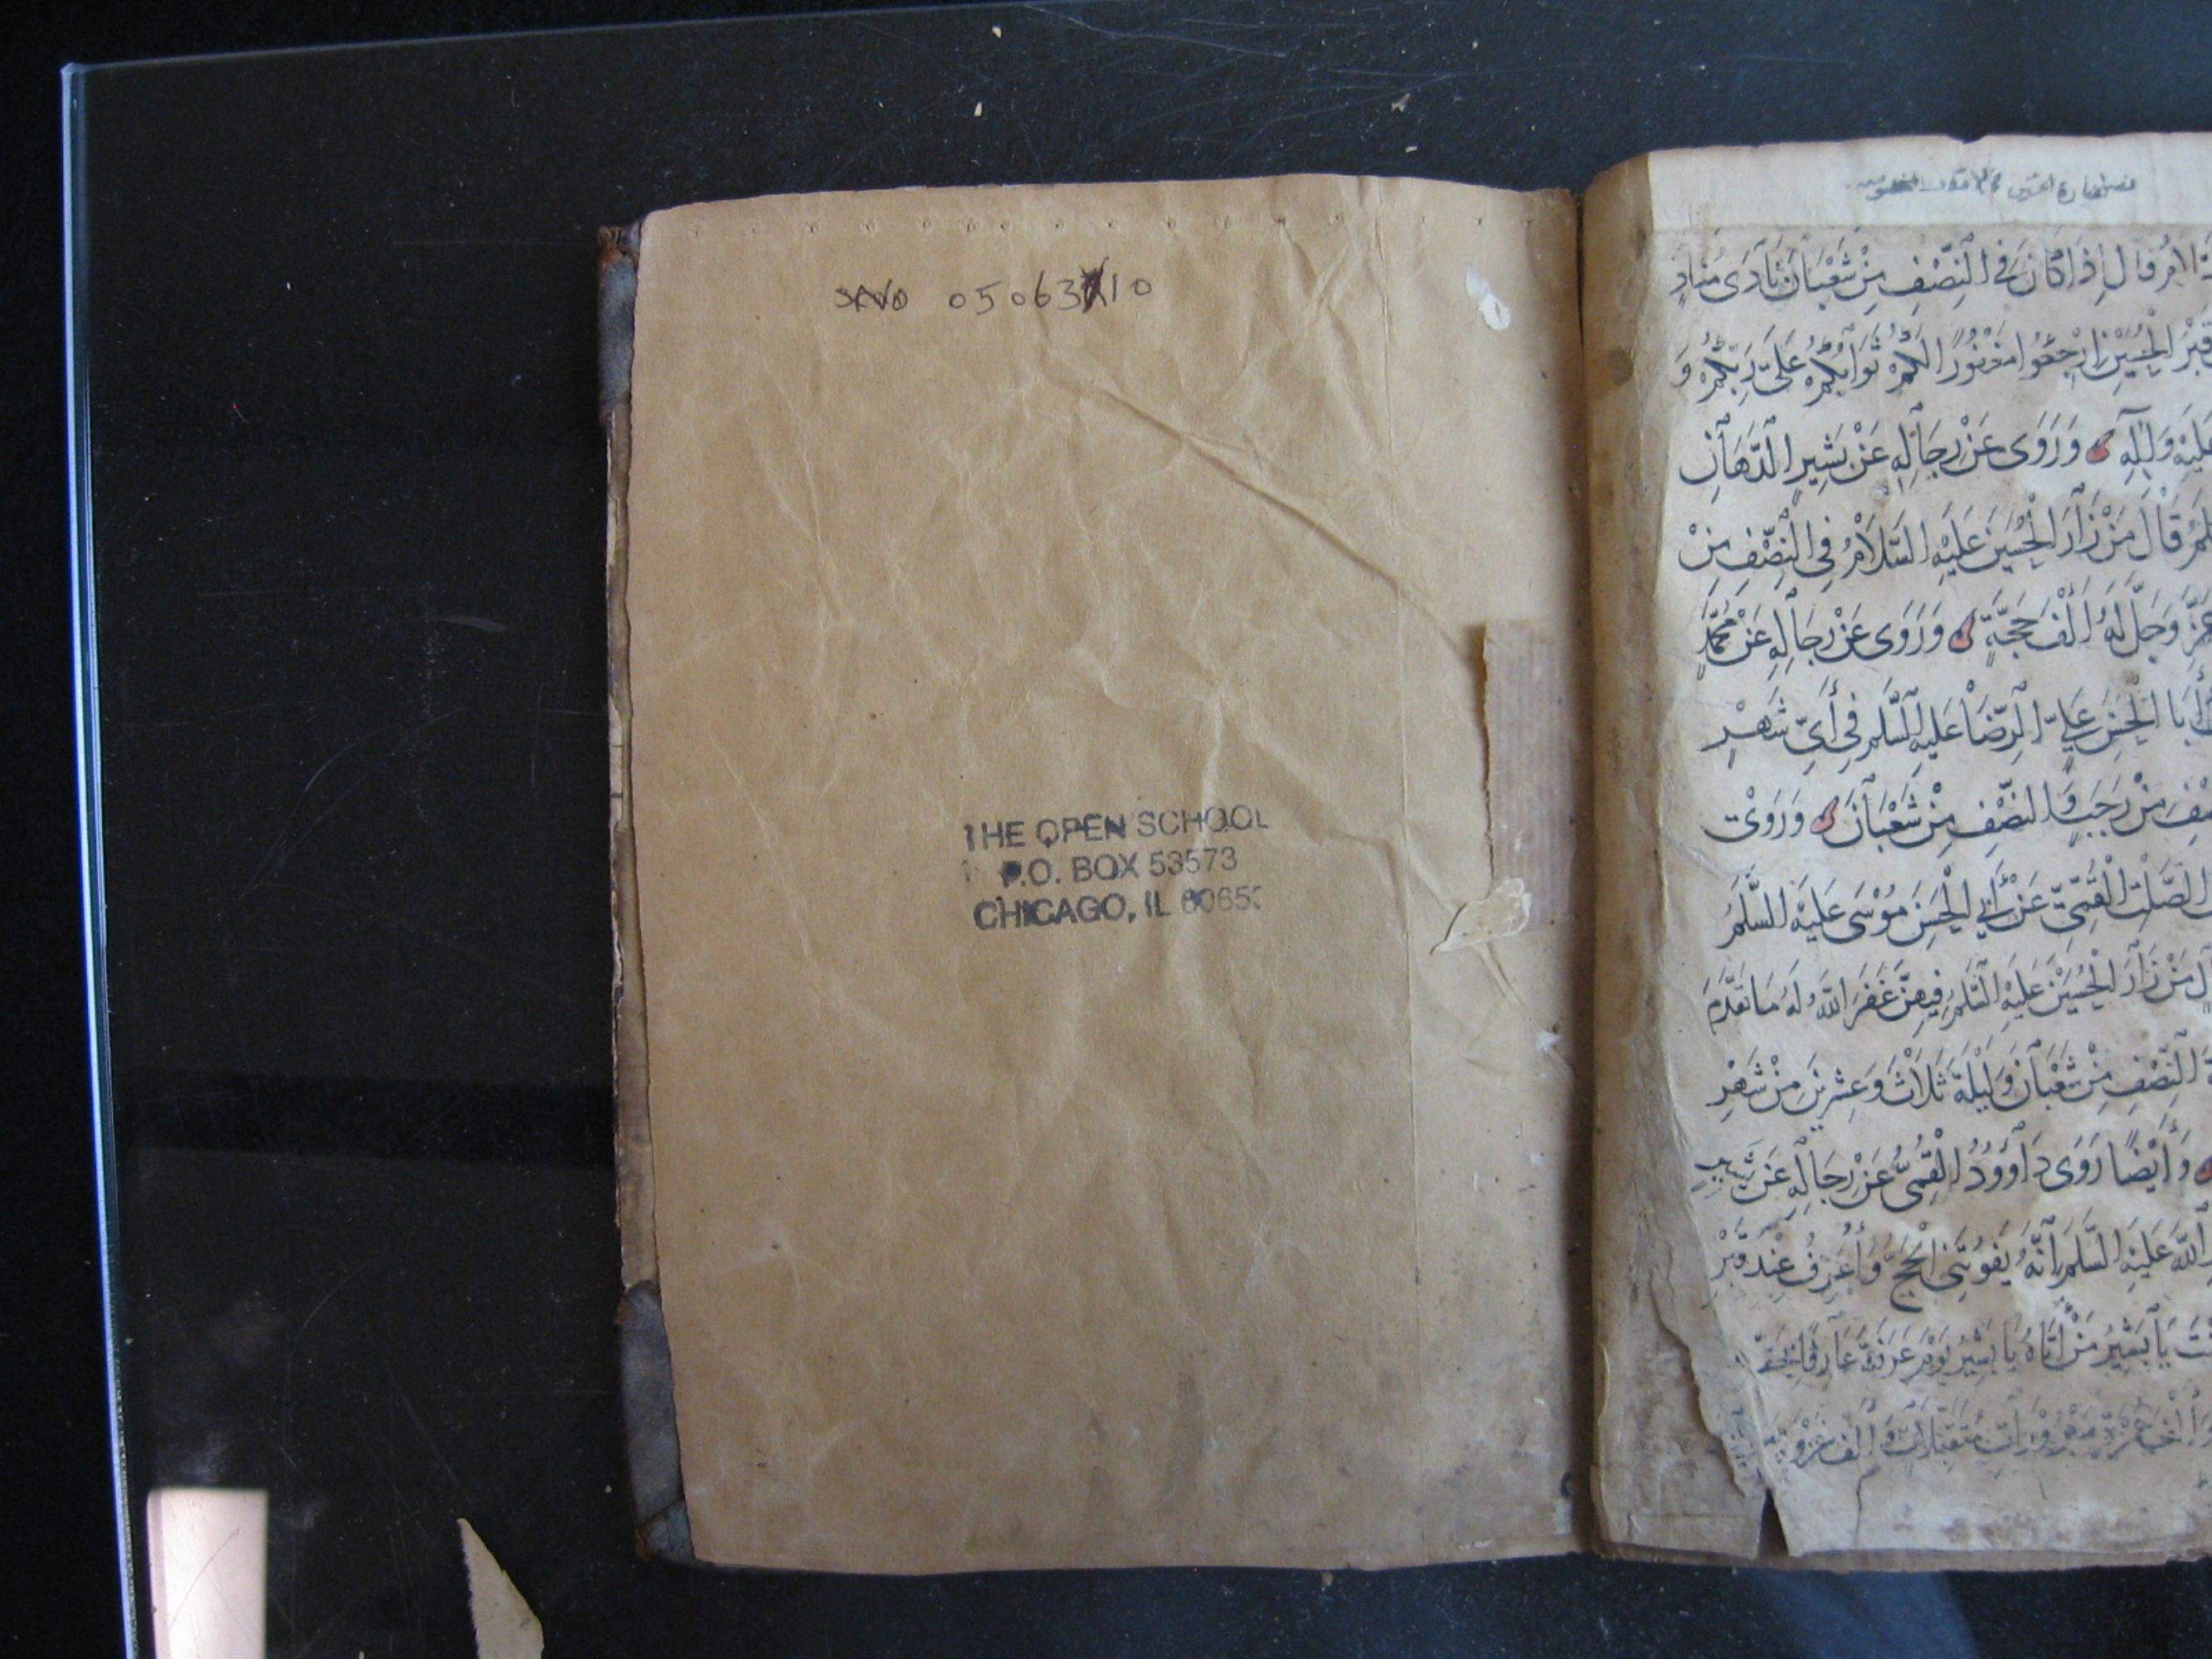 05063 10
THE OPEN SCHOOL
P.O. BOX 53573
CHICAGO, IL 6065
الأمر قال إذا كان في النصف من شعبان نادى مناد
قبر الحسين ارجعوا مغفورا لكم ثوابكم على ربكم و
وروى عن رجاله عن بشير الدهان
قال من زار الحسين عليه السلام في النصف من
عز وجل له ألف حجة وروى عن رجاله عن محمد
أبا الحسن علي الرضا عليه السلم في أي شهر
من رجب والنصف من شعبان وروى
الصلت القمي عن أبي الحسن موسى عليه السلم
من زار الحسين عليه السلم فيهن غفر الله له ما تقدم
النصف من شعبان وليلة ثلاث وعشرين من شهر
وأيضا روى داوود القمي عن رجاله عن
الله عليه السلم أنه يفوتني الحج وأعرف عند قبر
يا بشير من أتاه يا بشير يوم عرفة عارفا بحقه
متقبلات وألف غزو